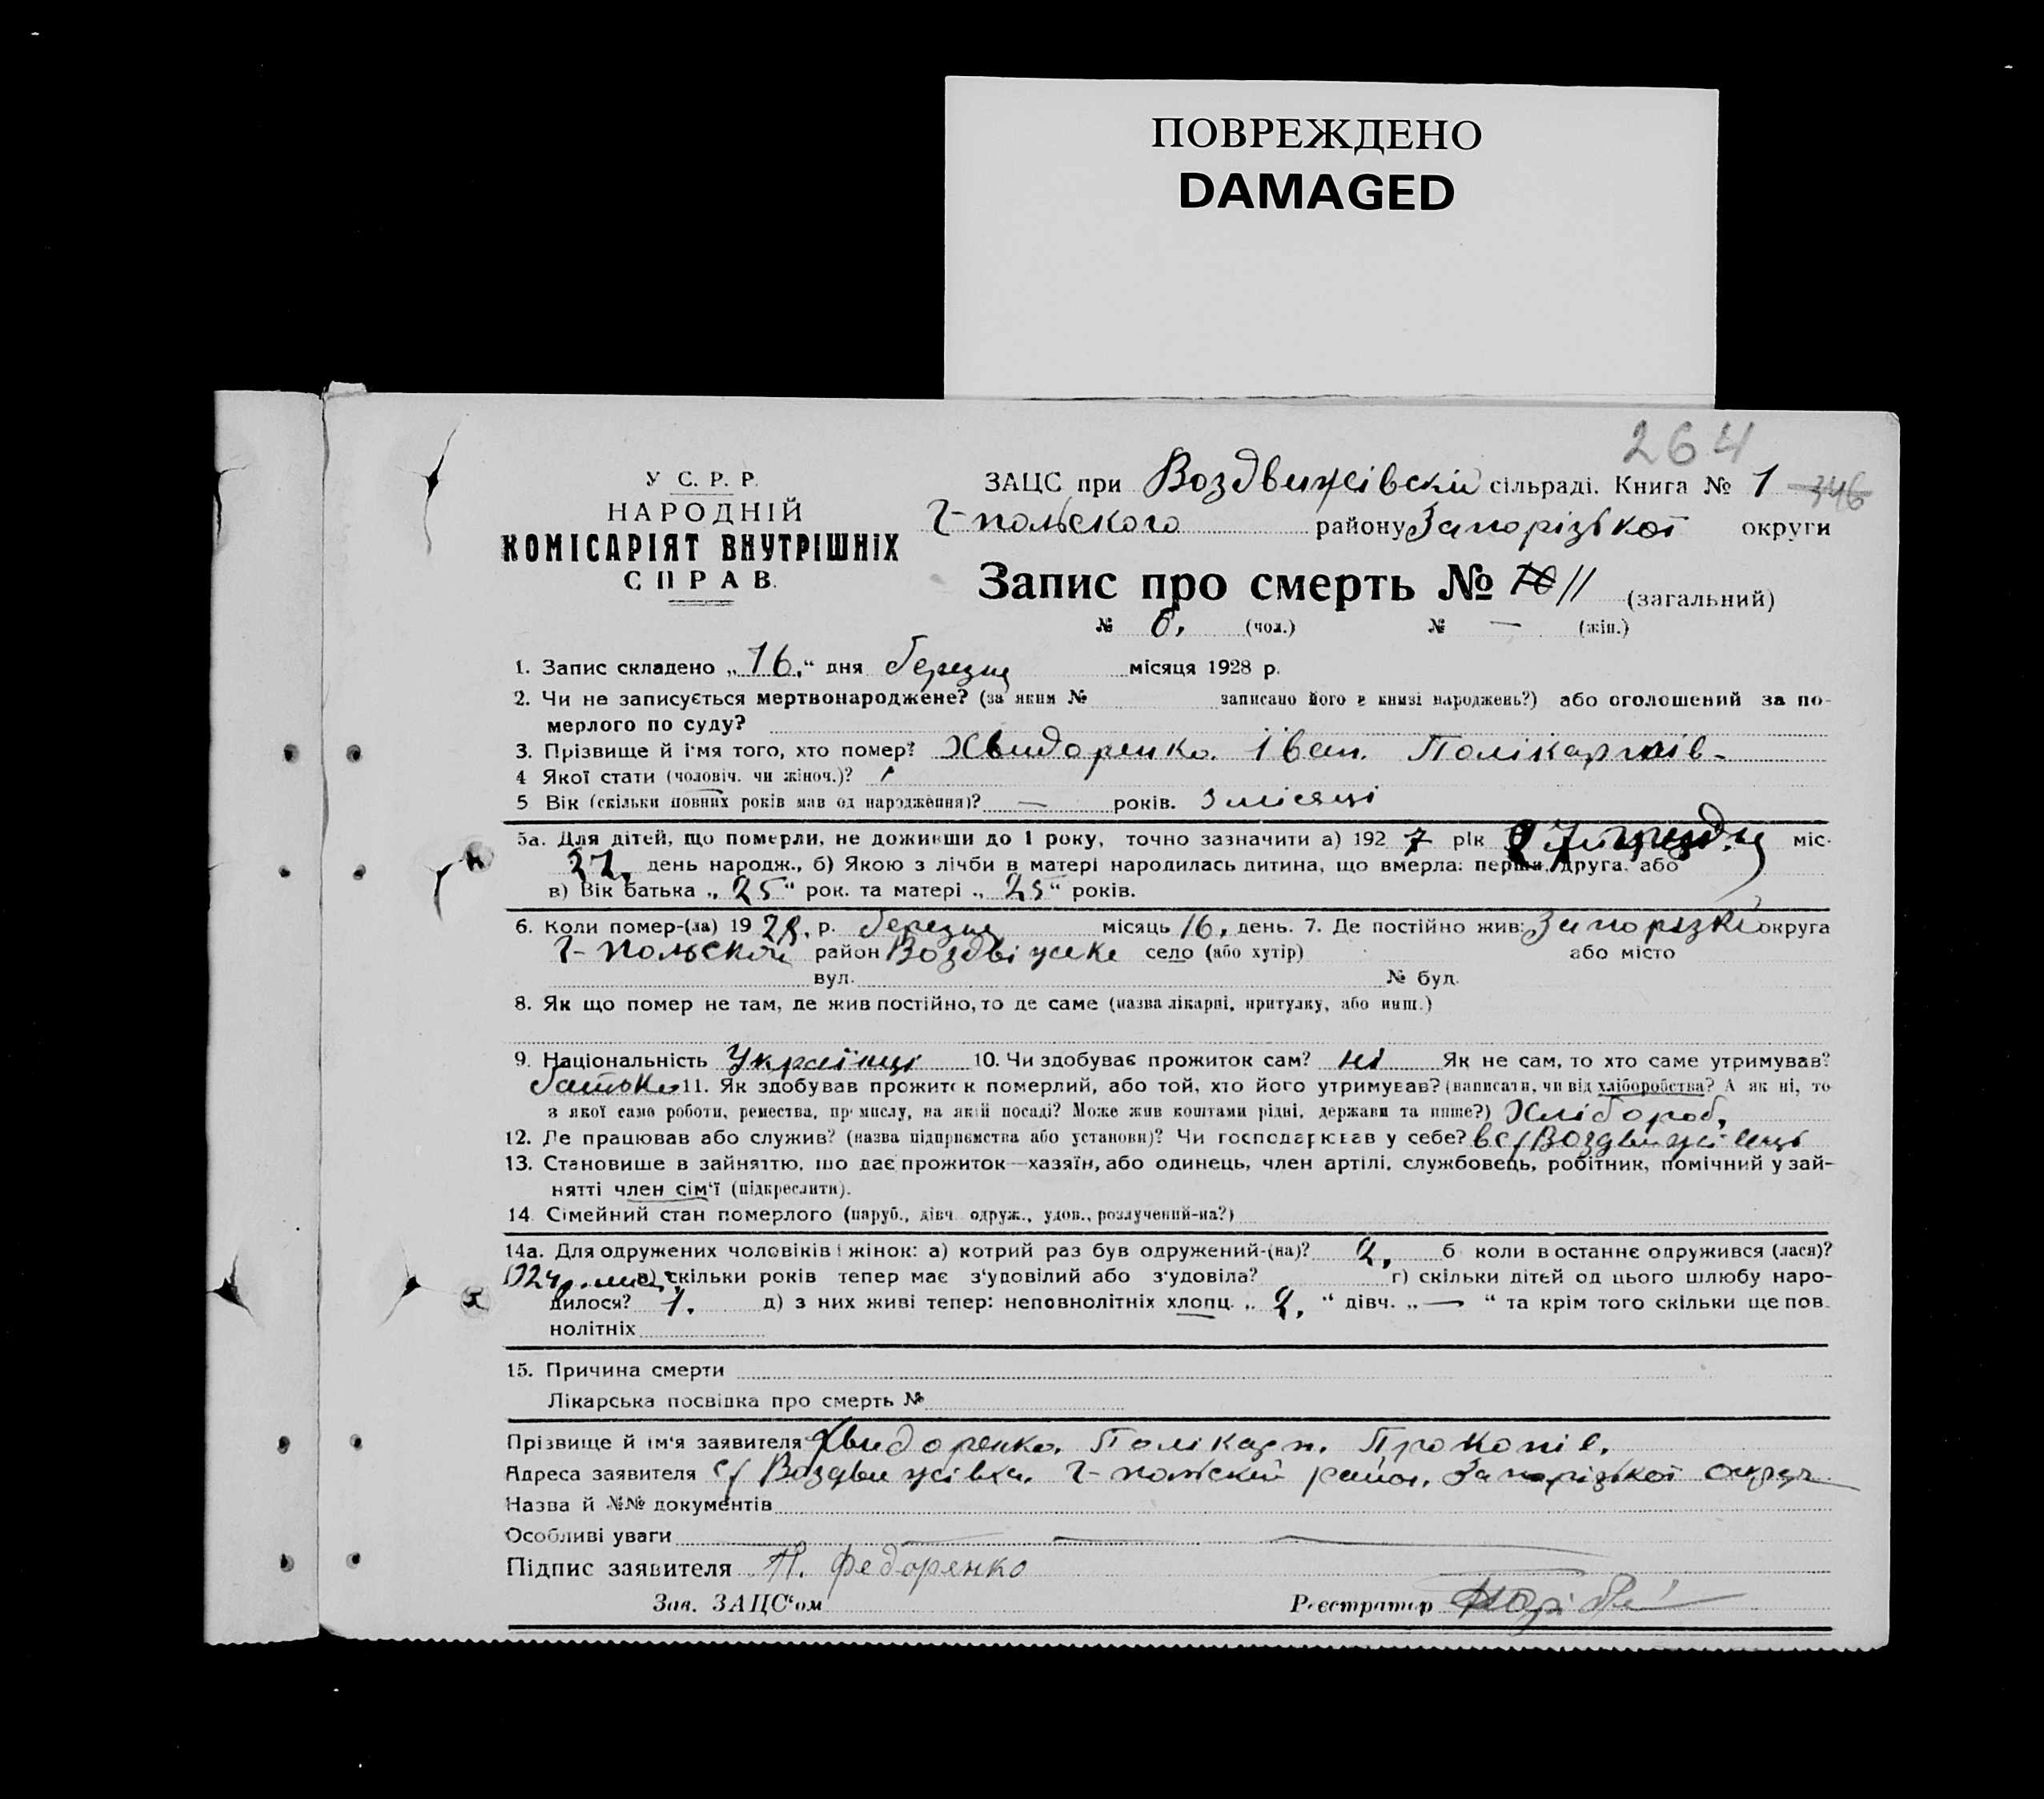 ПОВРЕЖДЕНО
DAMAGED
264
У С. Р. Р.
НАРОДНІЙ
КОМІСАРІЯТ ВНУТРІШНІХ
СПРАВ.
ЗАЦС при Воздвижівскій сільраді. Книга № 1 346
Г-польского району Запорізької округи
Запис про смерть № 10 11 (загальний)
№ 6. (чол.) № — (жін.)
1. Запис складено „16.“ дня березня місяця 1928 р.
2. Чи не записується мертвонароджене? (за яким № записано його в книзі народжень?) або оголошений за по-
мерлого по суду?
3. Прізвище й ім'я того, хто помер? Хвидоренко. Іван. Полікарпів-
4 Якої стати (чоловіч. чи жіноч.)?
5 Вік (скільки повних років мав од народження)? — років. 3 місяці
5а. Для дітей, що померли, не доживши до 1 року, точно зазначити а) 1927 рік міс.
27. день народж., б) Якою з лічби в матері народилась дитина, що вмерла: перша, друга або
в) Вік батька „25“ рок. та матері „25“ років.
6. Коли помер-(ла) 1928. р. березня місяць 16. день. 7. Де постійно жив: Запорізкі округа
Г-польской район Воздвіжке село (або хутір) або місто
вул. № буд.
8. Як що помер не там, де жив постійно, то де саме (назва лікарні, притулку, або инш.)
9. Національність Українці 10. Чи здобуває прожиток сам? ні Як не сам, то хто саме утримував?
батько 11. Як здобував прожиток померлий, або той, хто його утримував? (написати, чи від хліборобства? А як ні, то
з якої само роботи, ремества, промислу, на якій посаді? Може жив коштами рідні, держави та инше?) Хлібороб,
12. Де працював або служив? (назва підприємства або установи)? Чи господарював у себе? в с/Воздвижівці
13. Становише в зайняттю, що дає прожиток—хазяїн, або одинець, член артілі, службовець, робітник, помічний у зай-
нятті член сім'ї (підкреслити).
14. Сімейний стан померлого (паруб., дівч. одруж., удов., розлучений-на?)
14а. Для одружених чоловіків і жінок: а) котрий раз був одружений-(на)? 2, б коли востаннє одружився (лася)?
1924р. в) скільки років тепер має з'удовілий або з'удовіла? г) скільки дітей од цього шлюбу наро-
дилося? 1. д) з них живі тепер: неповнолітніх хлопц. „2,“ дівч. „—“ та крім того скільки ще пов-
нолітніх
15. Причина смерти
Лікарська посвідка про смерть №
Прізвище й ім'я заявителя Хвидоренко. Полікарп. Прокопів.
Адреса заявителя с/ Воздвижівка. Г-польский район, Запорізької округ
Назва й №№ документів
Особливі уваги
Підпис заявителя П. Федоренко
Зав. ЗАЦС'ом Реєстратор